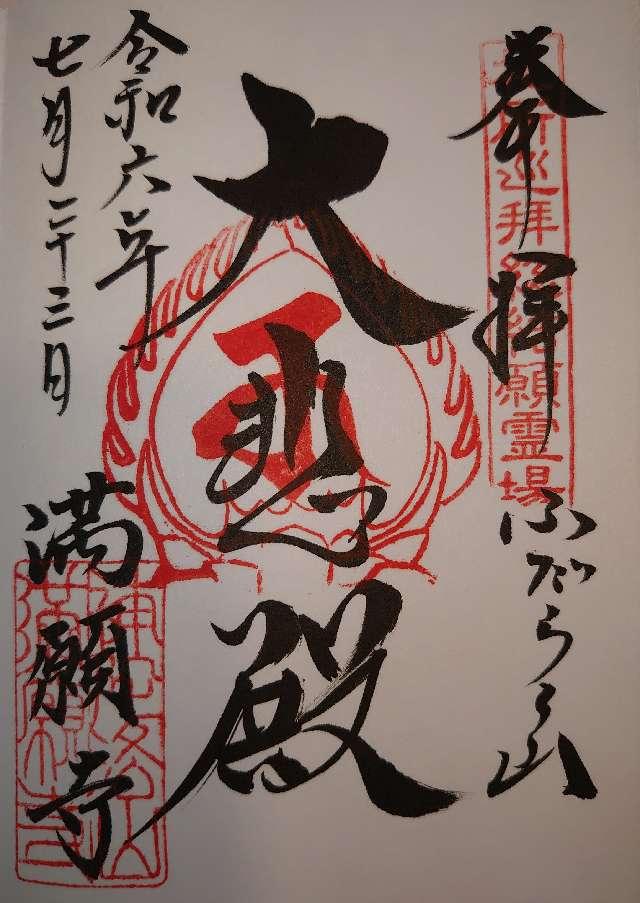 奉拝
巡拝 願霊場
ふだらく山
大悲殿
令和六年
七月二十三日
満願寺